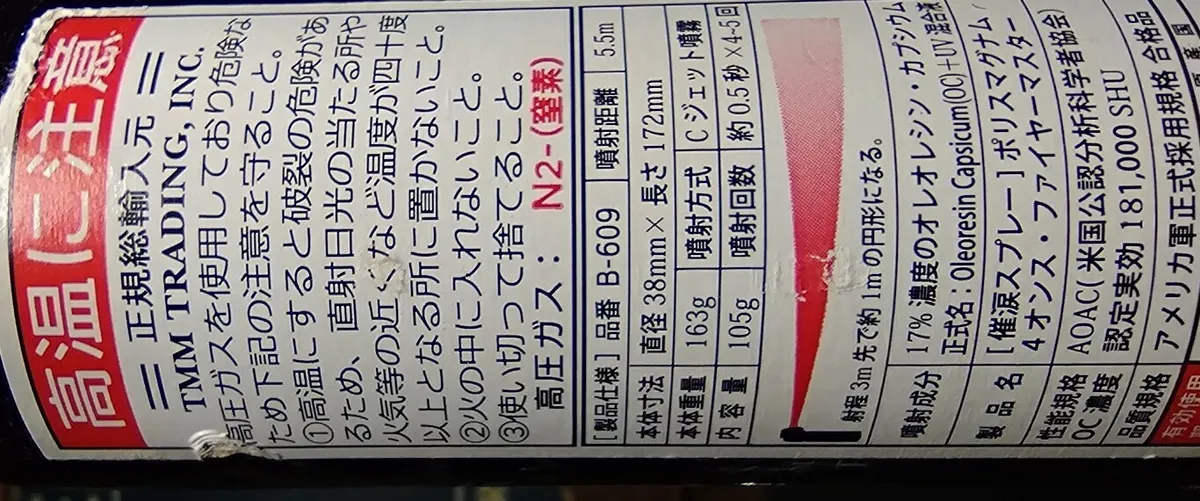 高温に注意
= 正規総輸入元 =
TMM TRADING, INC.
高圧ガスを使用しており危険な
ため下記の注意を守ること。
①高温にすると破裂の危険があ
るため、直射日光の当たる所や
火気等の近くなど温度が四十度
以上となる所に置かないこと。
②火の中に入れないこと。
③使い切って捨てること。
高圧ガス：N2-(窒素)
[製品仕様] 品番 B-609 噴射距離 5.5m
本体寸法 直径38mm×長さ172mm
本体重量 163g 噴射方式 Cジェット噴霧
内容量 105g 噴射回数 約0.5秒×4-5回
射程3m先で約1mの円形になる。
噴射成分 17%濃度のオレオレシン・カプシウム
正式名：Oleoresin Capsicum(OC)+UV混合液
製品名 [催涙スプレー]ポリスマグナム
4オンス・ファイヤーマスター
性能規格 AOAC(米国公認分析科学者協会)
OC濃度 認定実効181,000 SHU
品質規格 アメリカ軍正式採用規格 合格品
有効使用